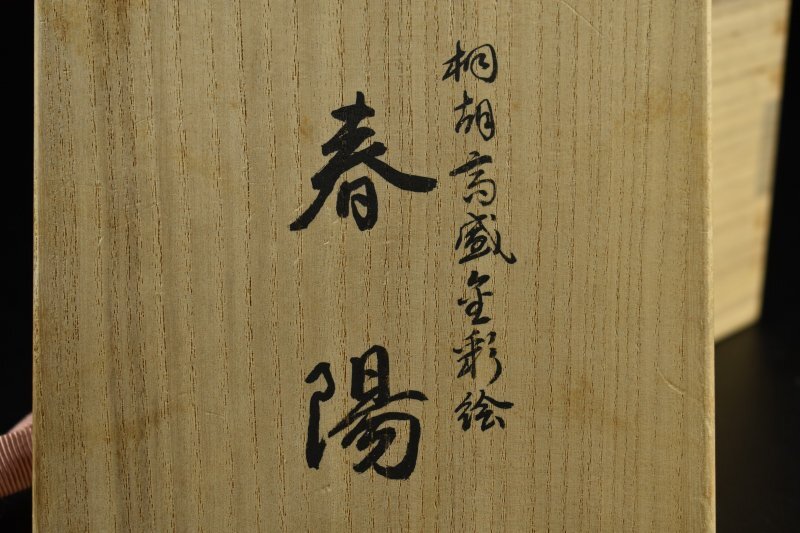 桐胡高盛金彩絵
春陽